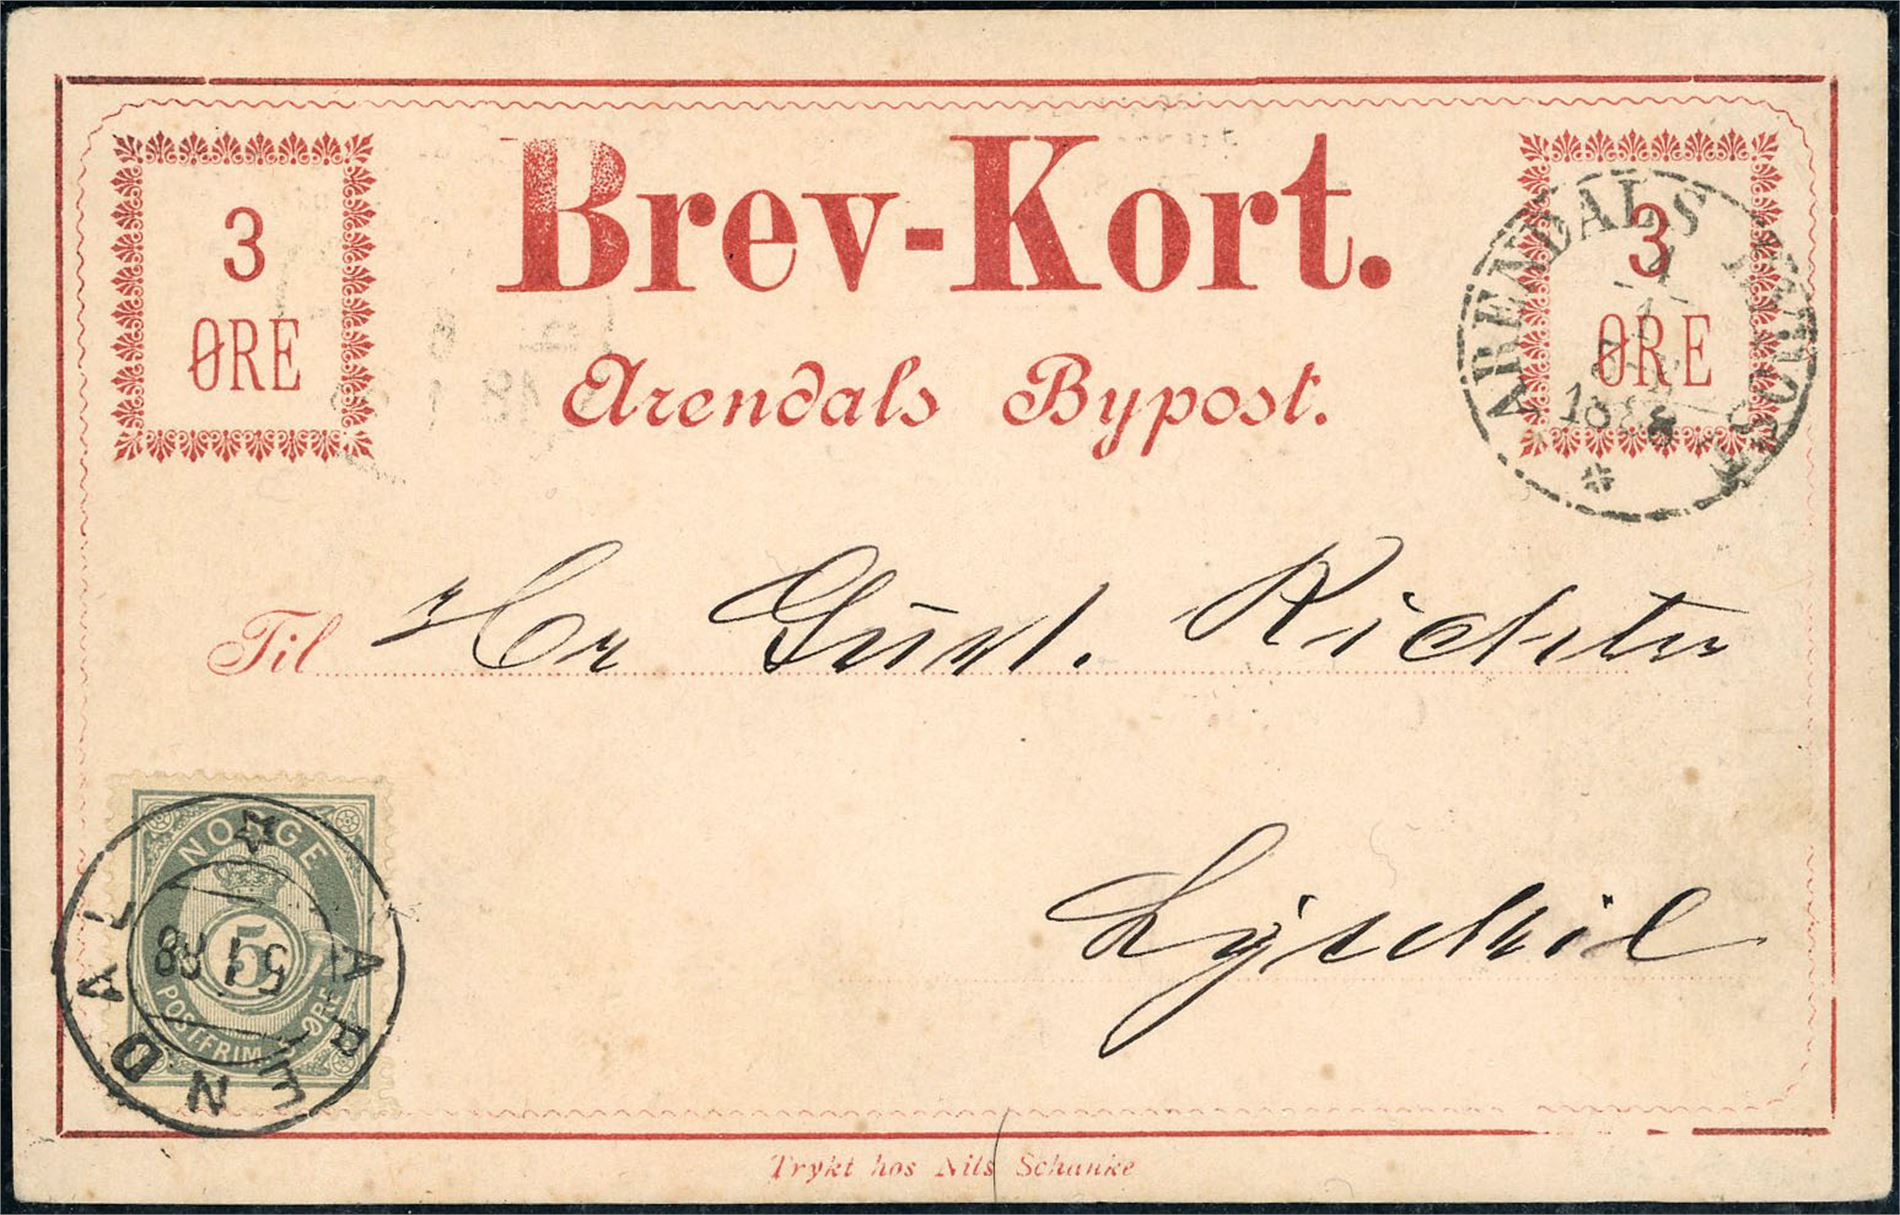 Brev-Kort.
3
ØRE
3
ØRE
Arendals Bypost.
ARENDALS BYPOST
1888
Til Hr Gust. Richter
Lysekil
NORGE
5
POSTFRIM.
ØRE
ARENDAL
5 1 88
Trykt hos Nils Schanke